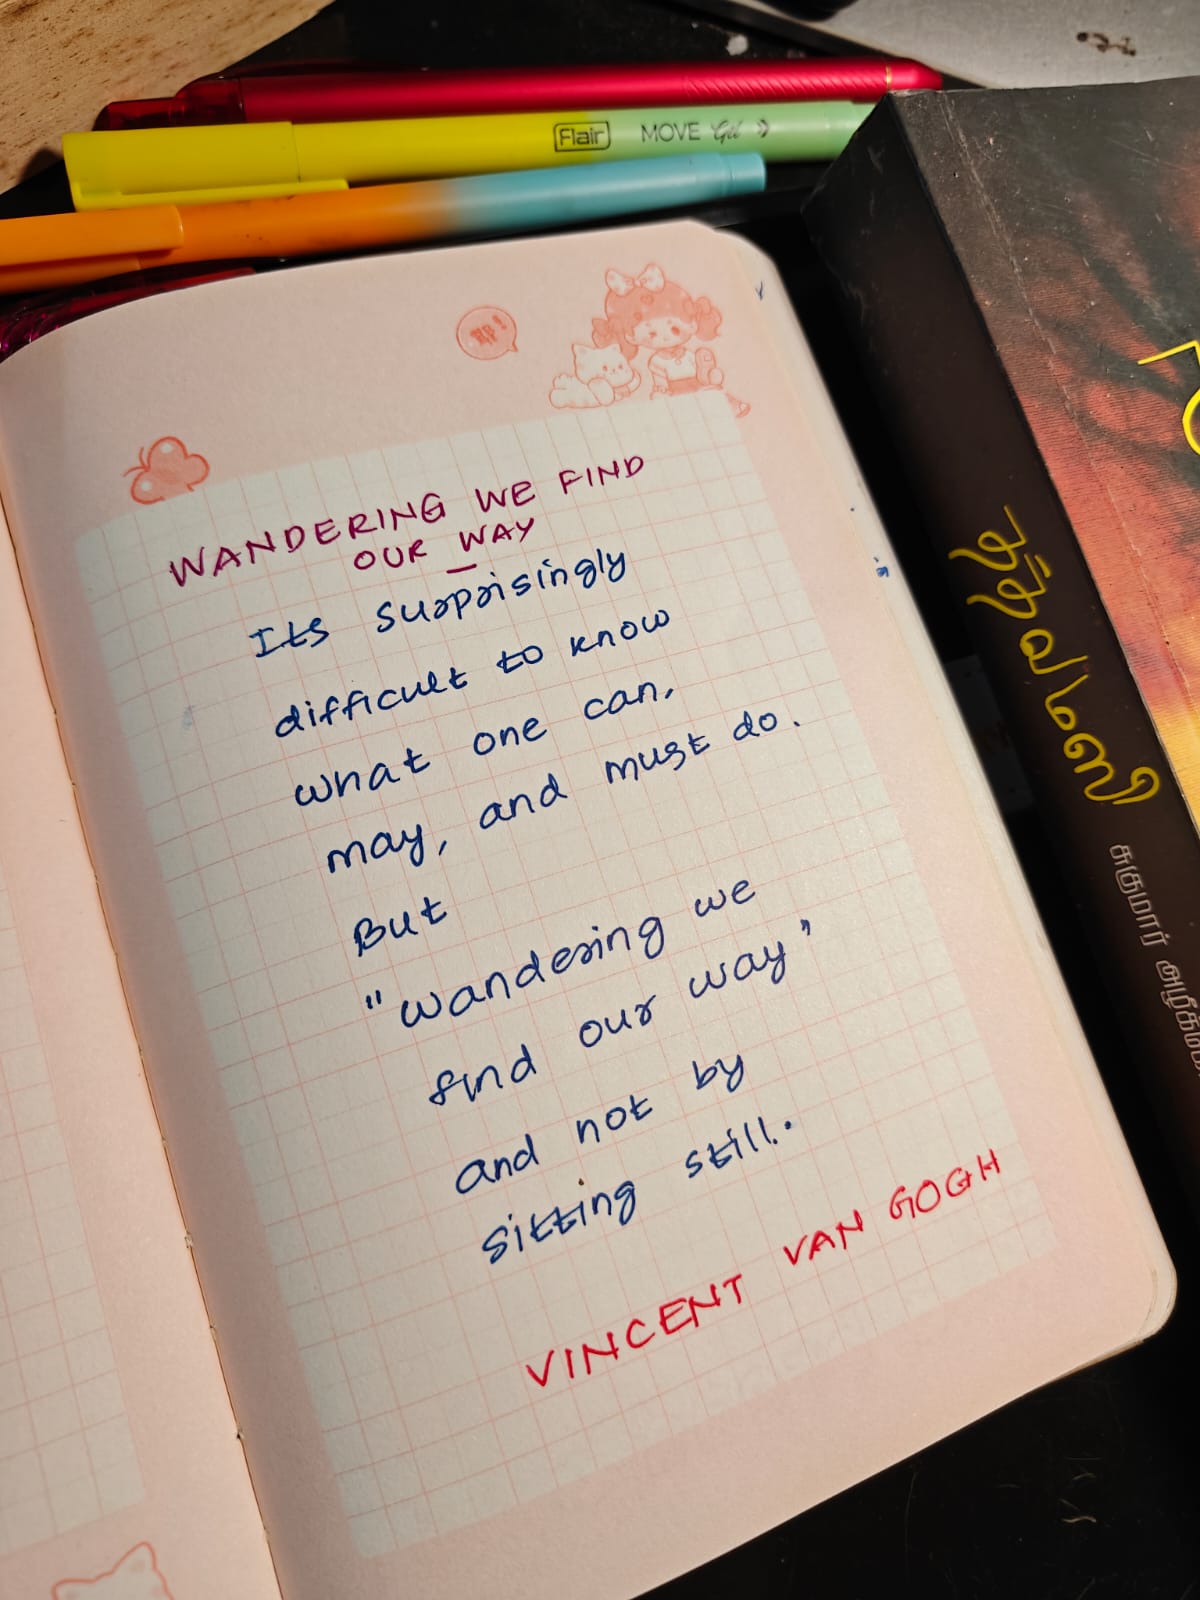 Flair MOVE Gel
WANDERING WE FIND
OUR WAY
Its surprisingly
difficult to know
what one can,
may, and must do.
But
"wandering we
find our way"
and not by
sitting still.
VINCENT VAN GOGH
சுகுமார்